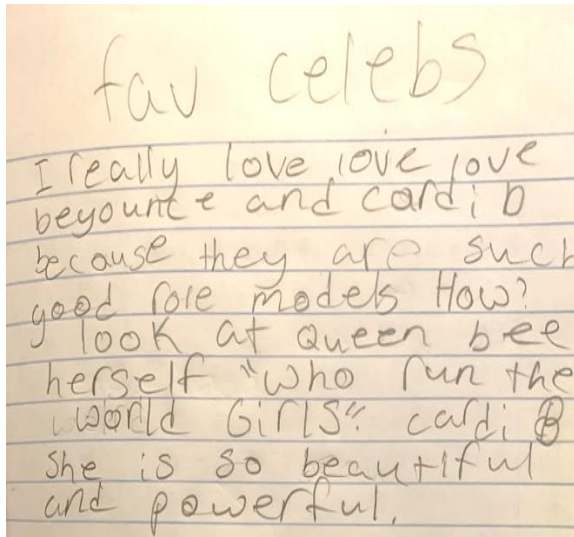 fav celebs
I really love love love
beyounce and cardi b
because they are such
good role models How?
look at Queen bee
herself "who run the
world GirlS". cardi B
she is so beautiful
and powerful.